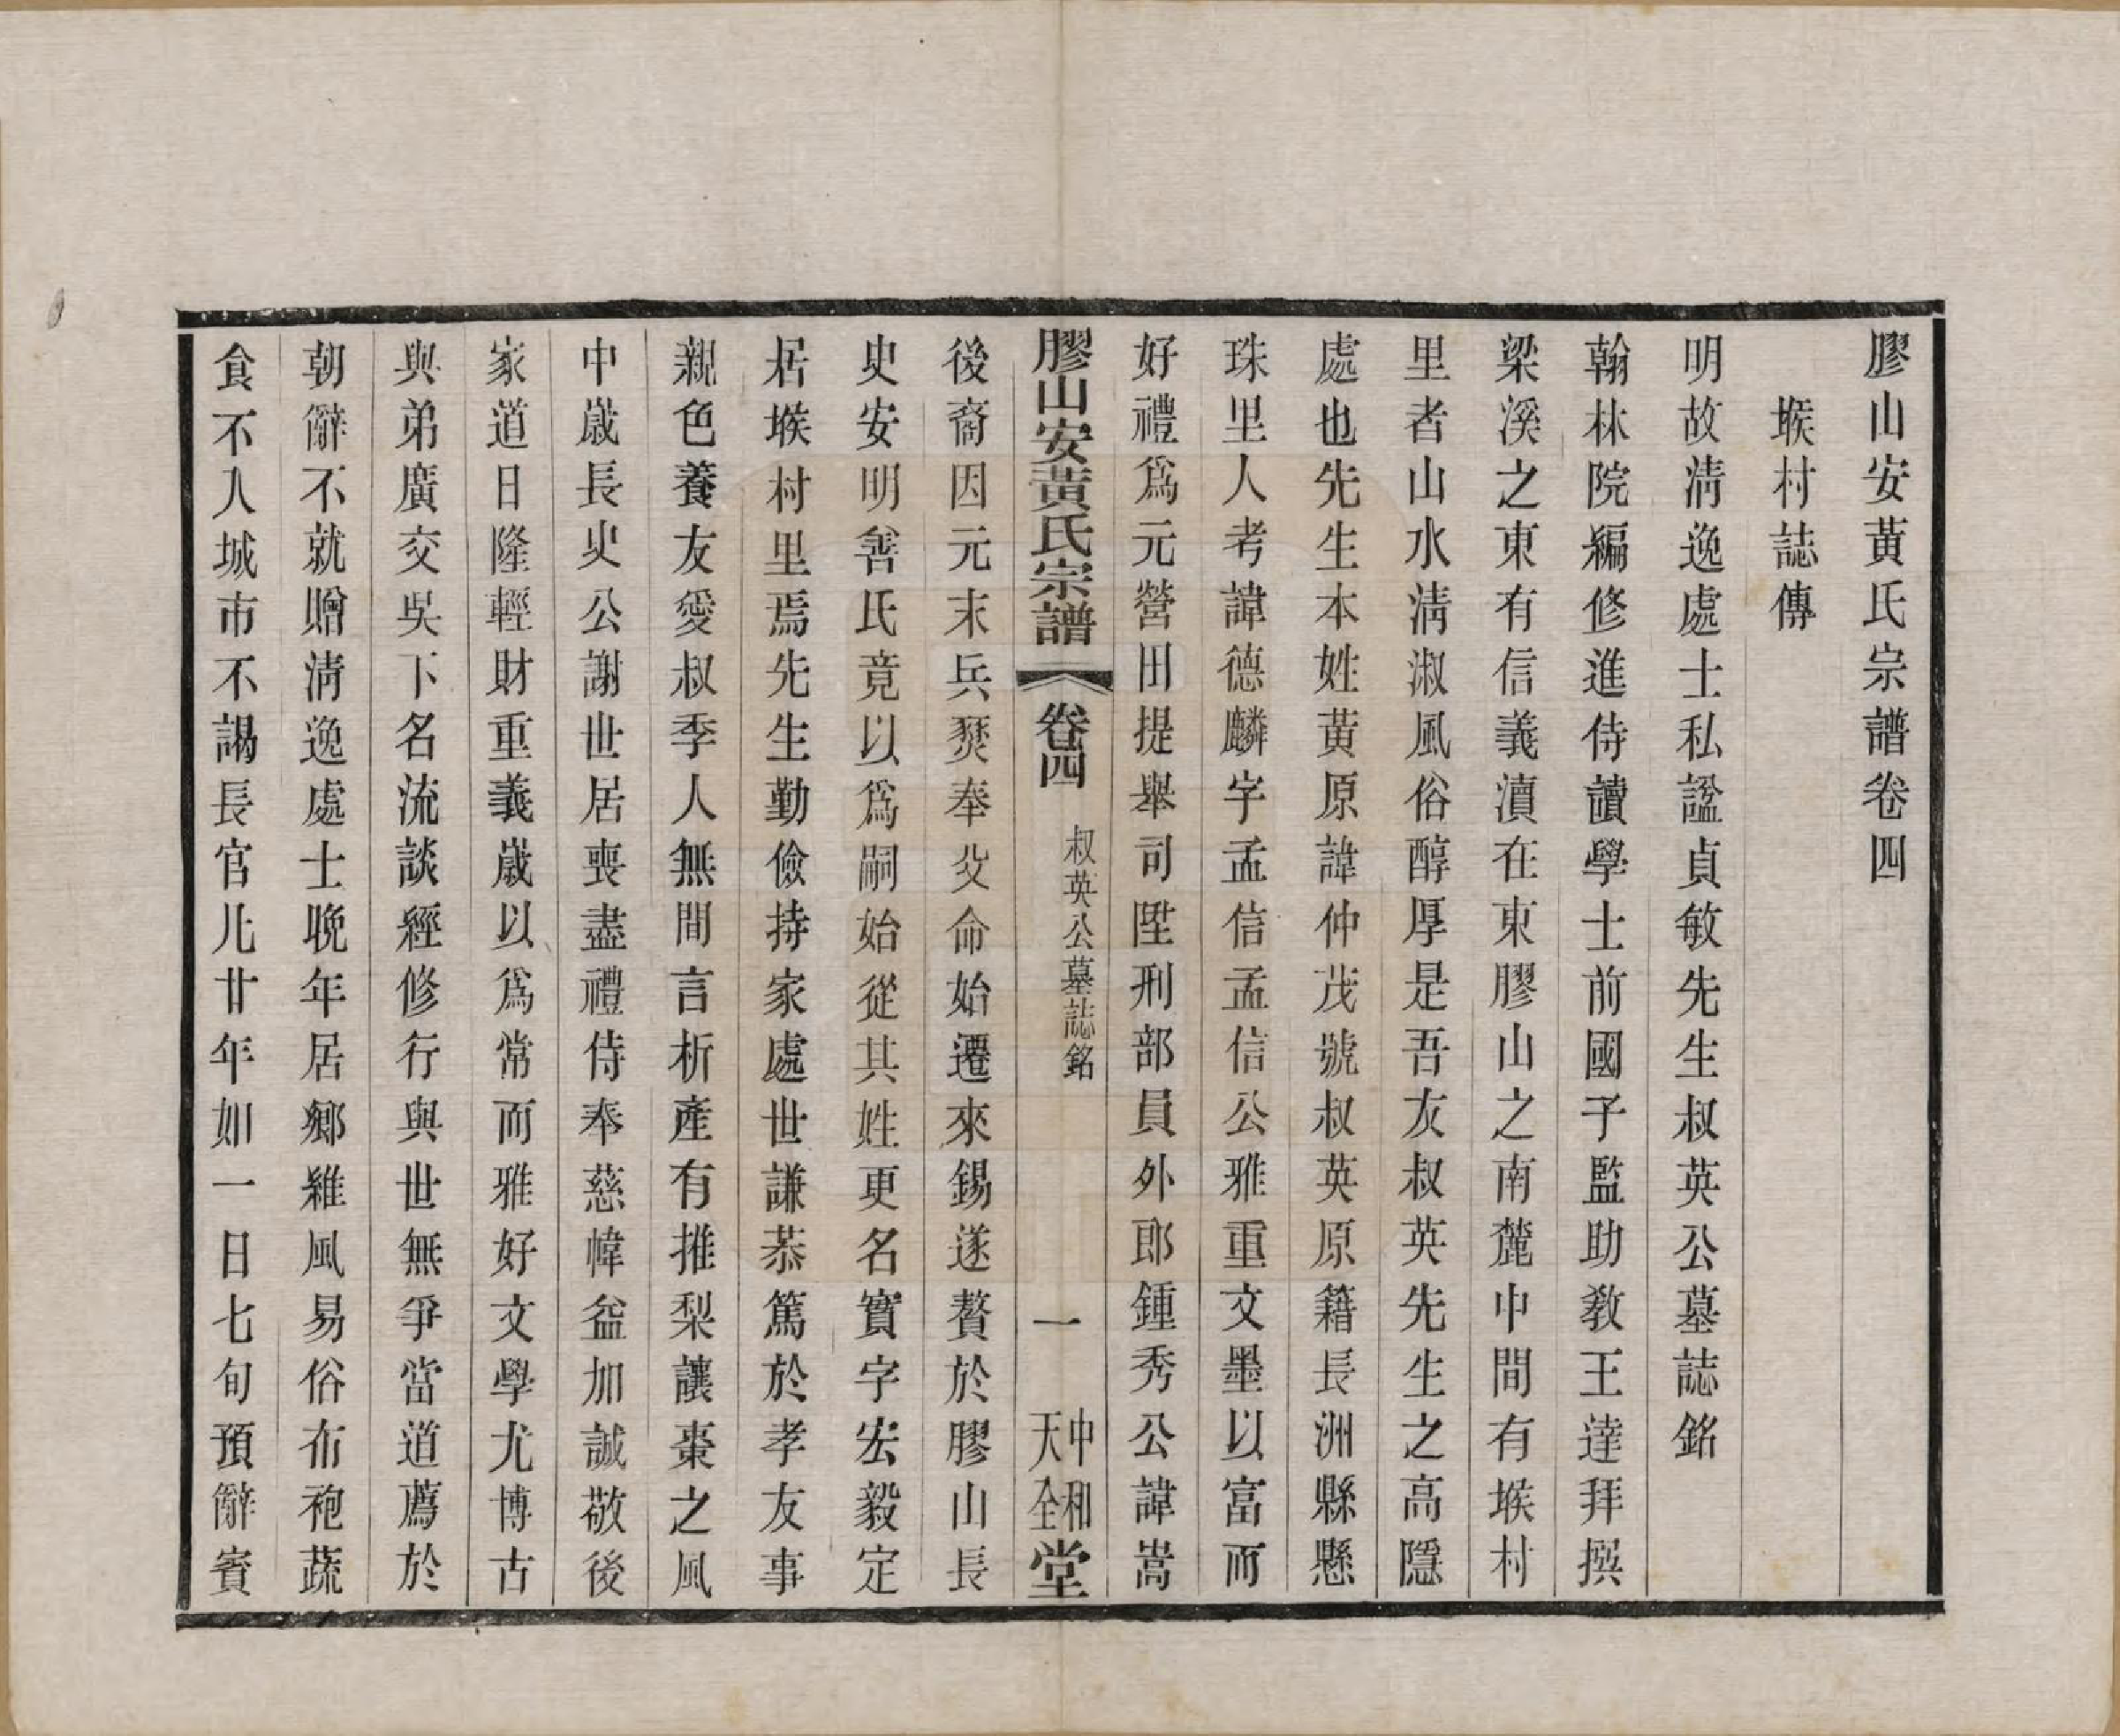 膠山安黃氏宗譜卷四
堠村誌傳
明故淸逸處士私謚貞敏先生叔英公墓誌銘
翰林院編修進侍讀學士前國子監助敎王達拜撰
梁溪之東有信義瀆在東膠山之南麓中間有堠村
里者山水淸淑風俗醇厚是吾友叔英先生之高隱
處也先生本姓黃原諱仲茂號叔英原籍長洲縣懸
珠里人考諱德麟字孟信孟信公雅重文墨以富而
好禮爲元營田提舉司陞刑部員外郎鍾秀公諱嵩
膠山安黃氏宗譜 卷四 叔英公墓誌銘 一 中和天全堂
後裔因元末兵燹奉父命始遷來錫遂贅於膠山長
史安明善氏竟以爲嗣始從其姓更名實字宏毅定
居堠村里焉先生勤儉持家處世謙恭篤於孝友事
親色養友愛叔季人無間言析產有推梨讓棗之風
中歲長史公謝世居喪盡禮侍奉慈幃益加誠敬後
家道日隆輕財重義歲以爲常而雅好文學尤博古
與弟廣交吳下名流談經修行與世無爭當道薦於
朝辭不就贈淸逸處士晚年居鄉維風易俗布袍蔬
食不入城市不謁長官凡廿年如一日七旬預辭賓